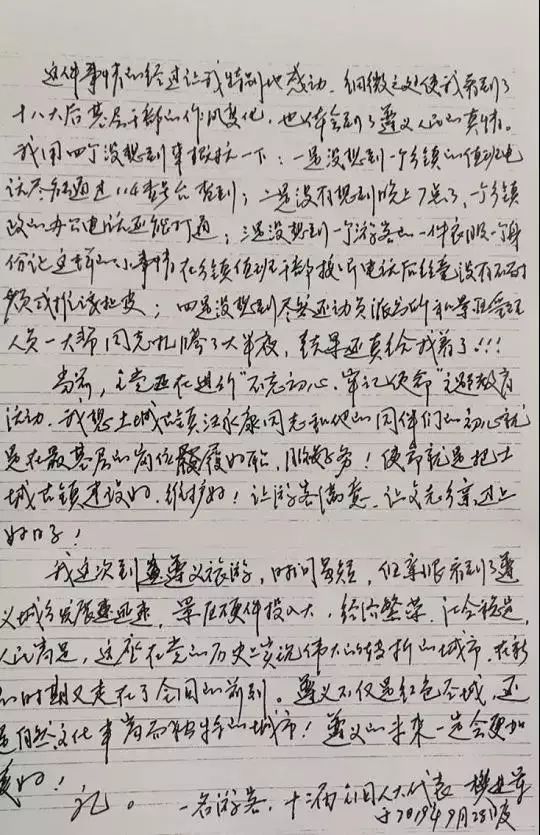 这件事情的经过让我特别地感动。细微之处使我看到了
十八大后基层干部的作风变化，也体会到了遵义人民的真情。
我用四个没想到来概括一下：一是没想到一个乡镇的值班电
话尽然通过114查号台查到；二是没有想到晚上7点了，一个乡镇
政府办公电话还能打通；三是没想到一个游客的一件衣服一个身
份证这样的小事情在乡镇值班干部接听电话后经查没有不耐
烦或推诿扯皮；四是没想到尽然还动员派出所和景区管理
人员一大帮同志忙腾了大半夜，结果还真给我着了!!!
当前，全党正在进行“不忘初心、牢记使命”主题教育
活动。我想土城古镇江永康同志和他的同伴们的初心就
是在最基层的岗位履好职，服好务！使命就是把土
城古镇建设好、维护好！让游客满意，让父老乡亲过上
好日子！
我这次到遵义旅游，时间虽短，但亲眼看到了遵
义城乡发展迅速，景区硬件投入大，经济繁荣，社会稳定，
人民满足，这座在党的历史上实现伟大的转折的城市，在新
的时期又走在了全国的前列。遵义不仅是红色圣城，还
是自然文化丰富而独特的城市！遵义的未来一定会更加
美好！
礼。
一名游客，十二届全国人大代表
于2019年9月28日夜